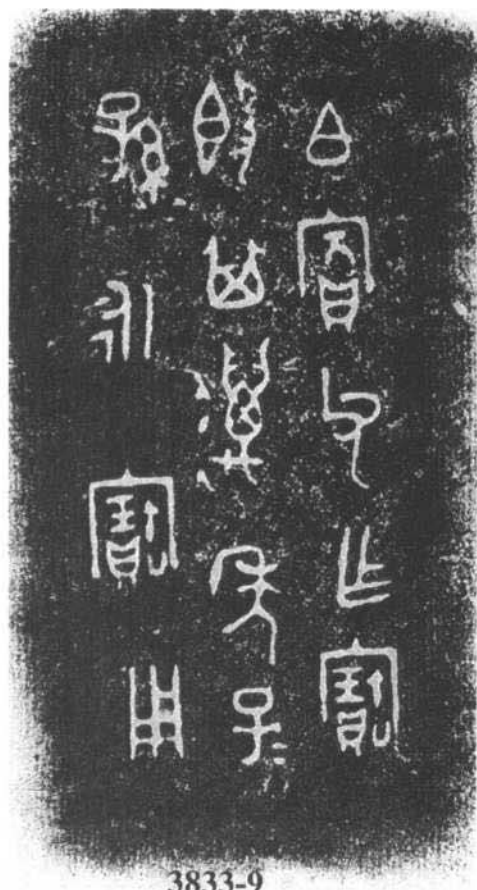 白賓父乍寶
𣪘其萬年子＝
孫＝永寶用
3833-9